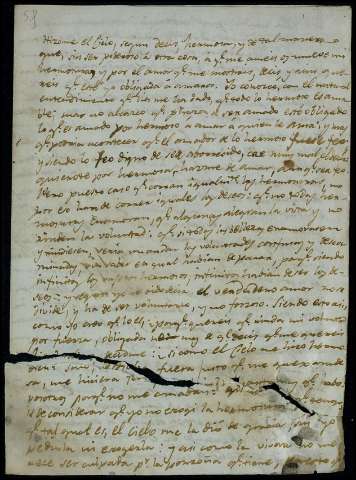 Hizome el Cielo, segun decis, hermosa, y de tal manera
que, sin ser poderosos a otra cosa, a que me ameis os mueve mi
hermosura, y por el amor que me mostrais, decis, y aun que-
reis que esté yo obligada a amaros. Yo conozco, con el natural
entendimiento que Dios me ha dado, que todo lo hermoso es ama-
ble; mas no alcanzo que por razon de ser amado, esté obligado
lo que es amado por hermoso a amar a quien le ama; y mas
que podria acontecer que el amador de lo hermoso fuese feo,
y siendo lo feo digno de ser aborrecido, cae muy mal el decir
quierote por hermosa, hazme de amar, aunque sea feo.
Pero puesto caso que corran igualmente las hermosuras, no
por eso han de correr iguales los deseos; que no todas her-
mosuras enamoran, que algunas alegran la vista, y no
rinden la voluntad: que si todas las bellezas enamorasen
y rindiesen, seria un andar las voluntades confusas y descami-
nadas, sin saber en cual habian de parar, porque siendo
infinitos los sujetos hermosos, infinitos habian de ser los de-
seos: y segun yo he oido decir, el verdadero amor no se
divide, y ha de ser voluntario, y no forzoso. Siendo esto asi,
como yo creo que lo es, porque quereis que rinda mi voluntad
por fuerza, obligada no mas de que decis que me quereis
si como el Cielo me hizo hermo-
sa, me hiciera
fuera justo que me quejara de
vosotros porque no me amabades?
de considerar que yo no escogi la hermosura que tengo,
que tal qual es, el Cielo me la dio de gracia, sin yo
pedirla ni escogerla: y asi como la vivora no me-
rece ser culpada por la ponzoña que tiene,